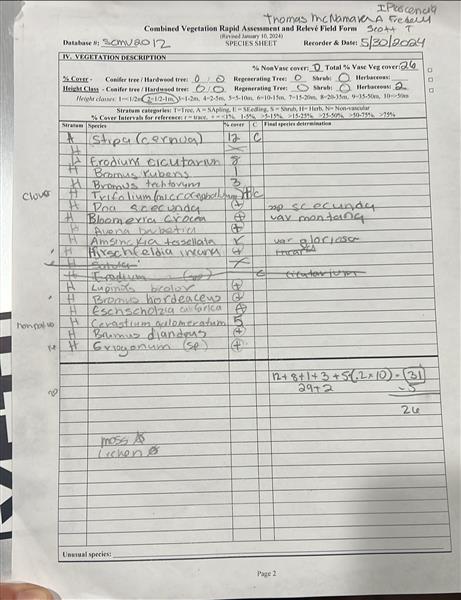 IPlascencia
Thomas McNamara A Fredell
Scott T
Combined Vegetation Rapid Assessment and Relevé Field Form
(Revised January 10, 2024)
Database #: SCMV2012 SPECIES SHEET Recorder & Date: 5/30/2024
IV. VEGETATION DESCRIPTION
% NonVasc cover: 0 Total % Vasc Veg cover: 26
% Cover - Conifer tree / Hardwood tree: 0 / 0 Regenerating Tree: 0 Shrub: 0 Herbaceous:
Height Class - Conifer tree / Hardwood tree: 0 / 0 Regenerating Tree: 0 Shrub: 0 Herbaceous: 2
Height classes: 1=<1/2m 2=1/2-1m 3=1-2m 4=2-5m 5=5-10m 6=10-15m 7=15-20m 8=20-35m 9=35-50m 10=>50m
Stratum categories: T=Tree, A=SApling, E=SEedling, S=Shrub, H=Herb, N=Non-vascular
% Cover Intervals for reference: r = trace, + = <1%, 1-5%, >5-15%, >15-25%, >25-50%, >50-75%, >75%
Stratum Species % cover C Final species determination
Stipa (cernua) 12 C
H
H Erodium cicutarium 8
H Bromus rubens 1
H Bromus 3
Clover H Trifolium (microcephalum) + C
H Poa secunda + ssp secunda
H Bloomeria crocea + var montana
H Avena barbata +
H Amsinckia tessellata r var gloriosa
H Hirschfeldia incana + incana
H
H Erodium (sp) C cicutarium
H Lupinus bicolor +
H Bromus hordeaceus +
H Eschscholzia californica
H Cerastium glomeratum 5
H Bromus diandrus +
H Eriogonum (sp.) +
12+8+1+3+5(.2×10) = 31
29+2 -5
26
moss
Lichen
Unusual species:
Page 2